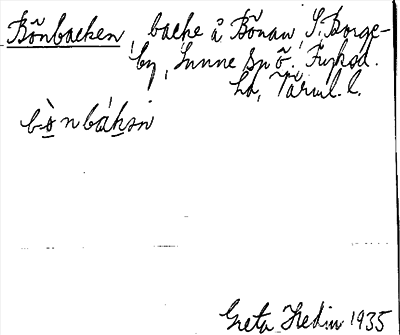 Bönbacken, backe å Bönan, S. Borge-
by, Sunne sn Ö. Fryksd.
hd, Värml. l.
bònbákən
Greta Hedin 1935